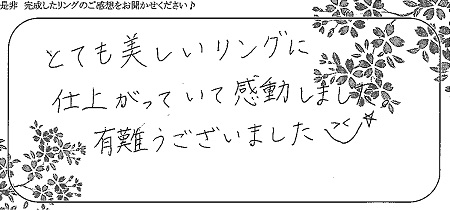 是非 完成したリングのご感想をお聞かせください♪
とても美しいリングに
仕上がっていて感動しました
有難うございました